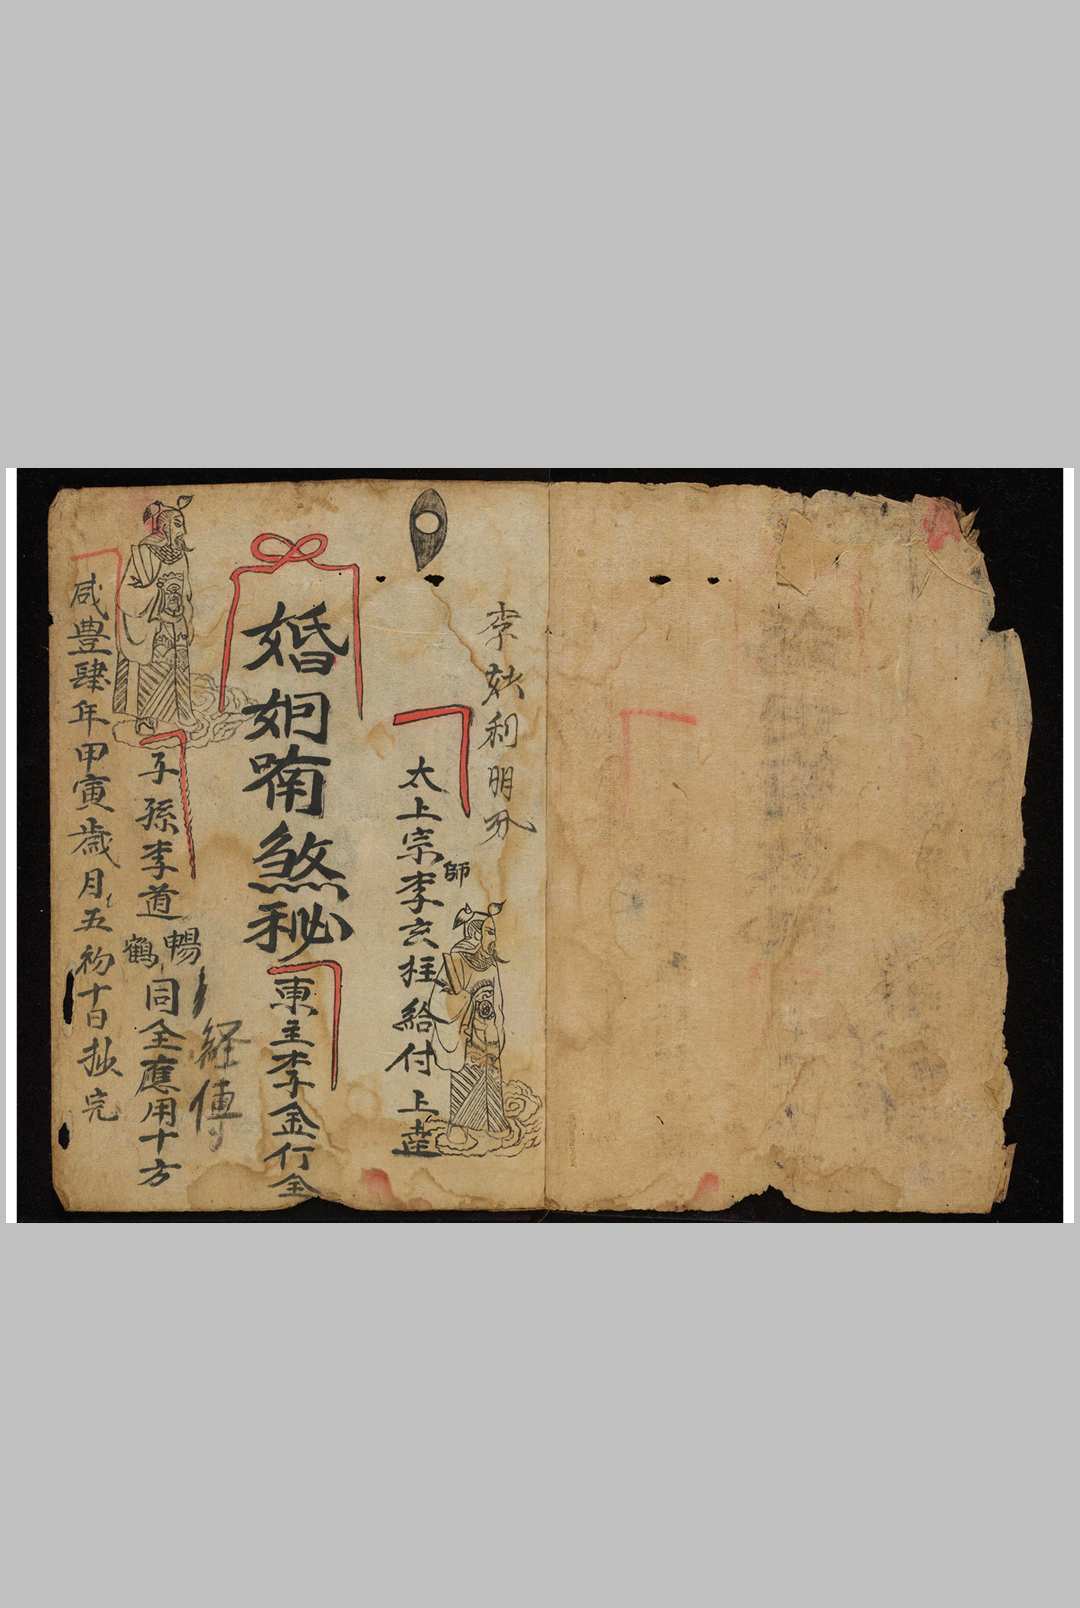 李妙利明分
太上宗師李玄柱給付上達
婚姻喃煞秘
東主李金行全
経傳
子孫李道暢鶴同全應用十方
咸豊肆年甲寅歲月五初十日抄完